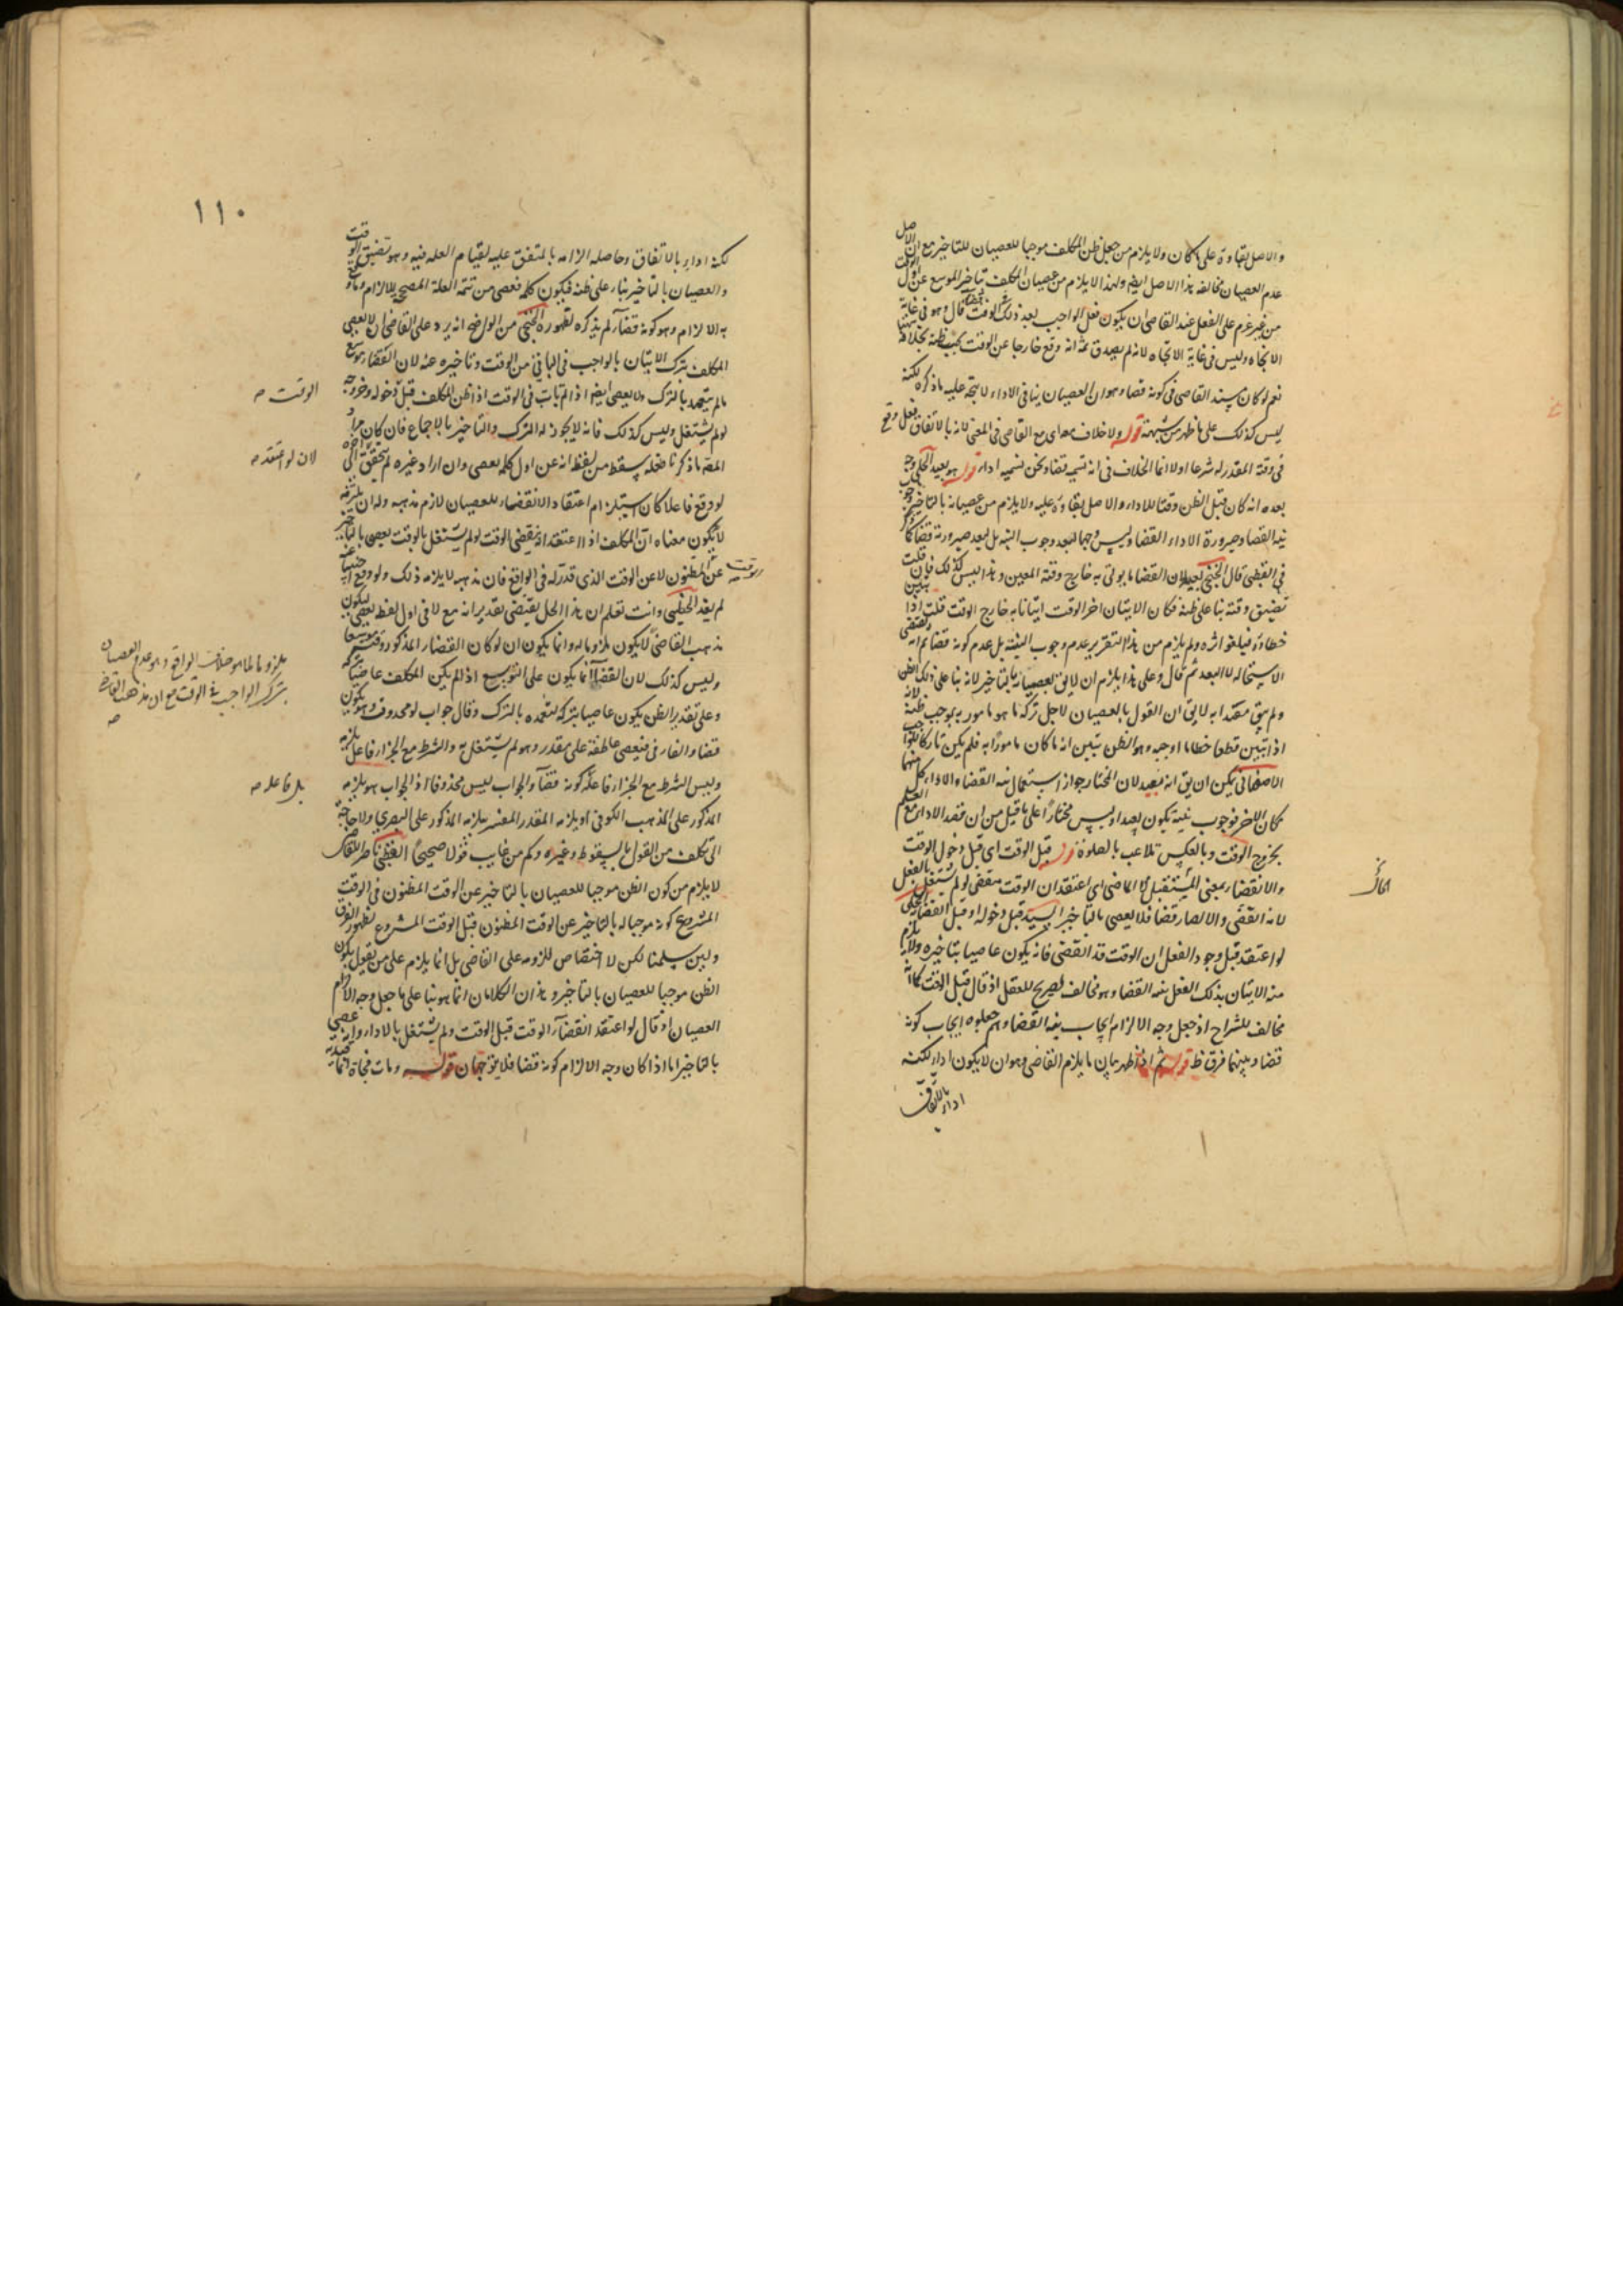 والاصل بقاؤه على ما كان ولا يلزم من جعل ظن المكلف موجبا للعصيان للتاخير مع ان الاصل
عدم العصيان مخالفه هذا الاصل ايضا ولهذا لا يلزم من عصيان المكلف بتاخير الموسع عن اول الوقت
من غير عزم على الفعل عند القاضى ان يكون فعل الواجب بعد ذلك الوقت قضاء قال وهو فى غاية
الاتجاه وليس فى غاية الاتجاه لانه لم يصدق ثمة انه وقع خارجا عن الوقت بحسب ظنه بخلافه
نعم لو كان سند القاضى فى كونه قضاء هو ان العصيان ينافى الاداء لا يتجه عليه ما ذكره لكنه
ليس كذلك على ما ظهر من شبهته قوله ولا خلاف معه اى مع القاضى فى المعنى لانه بالاتفاق فعل وقع
فى وقته المقدر له شرعا اولا انما الخلاف فى انه تسميه قضاء ونحن نسميه اداء قوله هو بعيد
بعده انه كان قبل الظن وقتا للاداء والاصل بقاؤه عليه ولا يلزم من عصيانه بالتاخير
نية القضا وصيرورة الاداء القضا وليس وجها لبعد وجوب النية بل لبعد صيرورته قضاء
فى القطبى قال الخنجى لبعيد لان القضا ما يوتى به خارج وقته المعين وهذا ليس كذلك فان قلت
تضيق وقته بنا على ظنه فكان الاتيان اخر الوقت اتيانا به خارج الوقت قلت اذا تبين
خطاؤه فيلغوا اثره ولم يلزم من هذا التقرير عدم وجوب النية بل عدم كونه قضاء
الاستحاله لا البعد ثم قال وعلى هذا يلزم ان لا يق بعصيانه بالتاخير لانه بنا على ذلك الظن
ولم يبق معتدا به لا يق ان القول بالعصيان لاجل تركه ما هو مامور به بموجب ظنه لانه
اذا تبين قطعا خطا ما اوجبه وهو الظن تبين انه ما كان مامورا به فلم يكن تاركا للواجب
الاصفهانى يمكن ان يق انه بعيد لان المختار جواز استعمال نية القضاء والاداء كل منهما
مكان الاخر فوجوب نية يكون بعيدا وليس مختارا على ما قيل من ان قصد الاداء مع العلم
بخروج الوقت وبالعكس تلاعب بالصلوة قوله قبل الوقت اى قبل دخول الوقت
والانقضاء بمعنى المستقبل لا الماضى اى اعتقد ان الوقت ينقضى لو لم يشتغل بالفعل
لانه انقضى والا لصار قضا فلا يعصى بالتاخير السيد قبل دخوله او قبل انقضائه
لو اعتقد قبل وجود الفعل ان الوقت قد انقضى فانه يكون عاصيا بتاخيره ولا يلزم
منه الاتيان بذلك الفعل بنية القضا وهو مخالف لصريح العقل اذ قال قبل الوقت
مخالف للشراح اذ جعل وجه الالزام ايجاب نية القضا وهم جعلوه ايجاب كونه
قضا وبينهما فرق ظ قوله ثم اذ ظهر بيان ما يلزم القاضى وهو ان لا يكون اداء لكنه
اداء بالاتفاق
١١٠
لكنه اداء بالاتفاق وحاصله الزامه بالمتفق عليه لقيام العله فيه وهو تضيق الوقت
والعصيان بالتاخير بناء على ظنه فيكون كلمه فعصى من تتمه العلة المصححه للالزام
به الالزام وهو كونه قضاء لم يذكره لظهوره الخنجى من الواضح انه يرد على القاضى ان لا يعصى
المكلف بترك الاتيان بالواجب فى الباقى من الوقت وتاخيره عنه لان القضاء موسع
ما لم يتعمد بالترك ولا يعصى ايضا اذا لم يات فى الوقت اذا ظن المكلف قبل دخوله خروجه
لو لم يشتغل وليس كذلك فانه لا يجوز له الترك والتاخير بالاجماع فان كان مراد
المصه ما ذكرنا فلعله سقط من لفظ انه عن اول كلمه يعصى وان اراد غيره لم يتحقق
لو وقع فاعلا كان استلزام اعتقاد الانقضاء للعصيان لازم مذهبه وله ان
لا يكون معناه ان المكلف اذا اعتقد انه ينقضى الوقت لو لم يشتغل بالوقت يعصى بالتاخير
عن المظنون لا عن الوقت الذى قدر له فى الواقع فان مذهبه لا يلزمه ذلك ولو وقع
لم يفد الخنجى وانت تعلم ان هذا الحل يقتضى تقدير انه مع لا فى اول لفظ يعصى ليكون
مذهب القاضى لا يكون ملزوما له وانما يكون ان لو كان القضاء المذكور وقته موسعا
وليس كذلك لان القضاء انما يكون على التوسيع اذا لم يكن المكلف عاصيا بتركه
وعلى تقدير الظن يكون عاصيا بتركه لتعمده بالترك وقال جواب لو محذوف وهو يكون
قضاء والفاء فى فيعصى عاطفة على مقدر وهو لم يشتغل به والشرط مع الجزاء فاعل يلزمه
وليس الشرط مع الجزاء فاعلا كونه قضاء والجواب ليس محذوفا اذ الجواب هو يلزمه
المذكور على المذهب الكوفى او يلزمه المقدر المفسر بيلزمه المذكور على البصرى ولا حاجة
الى تكلف من القول بالسقوط وغيره وكم من عايب قولا صحيحا القطبى ناظرا للقاضى
لا يلزم من كون الظن موجبا للعصيان بالتاخير عن الوقت المظنون فى الوقت
المشروع كونه موجبا له بالتاخير عن الوقت المظنون قبل الوقت المشروع لظهور الفرق
ولين سلمنا لكن لا اختصاص للزومه على القاضى بل انما يلزم على من يقول بكون
الظن موجبا للعصيان بالتاخير وهذان الكلامان انما هو بنا على ما جعل وجه الالزام
العصيان اذ قال لو اعتقد انقضاء الوقت قبل الوقت ولم يشتغل بالاداء
بالتاخير اما اذا كان وجه الالزام كونه قضا فلا يتوجهان قوله ومات فجاة
الوقت صه
لان لو اعتقد صه
ملزوما لما هو خلاف الواقع وهو عدم العصيان
بترك الواجب فى الوقت مع ان مذهب القاضى
صه
بل فاعله صه